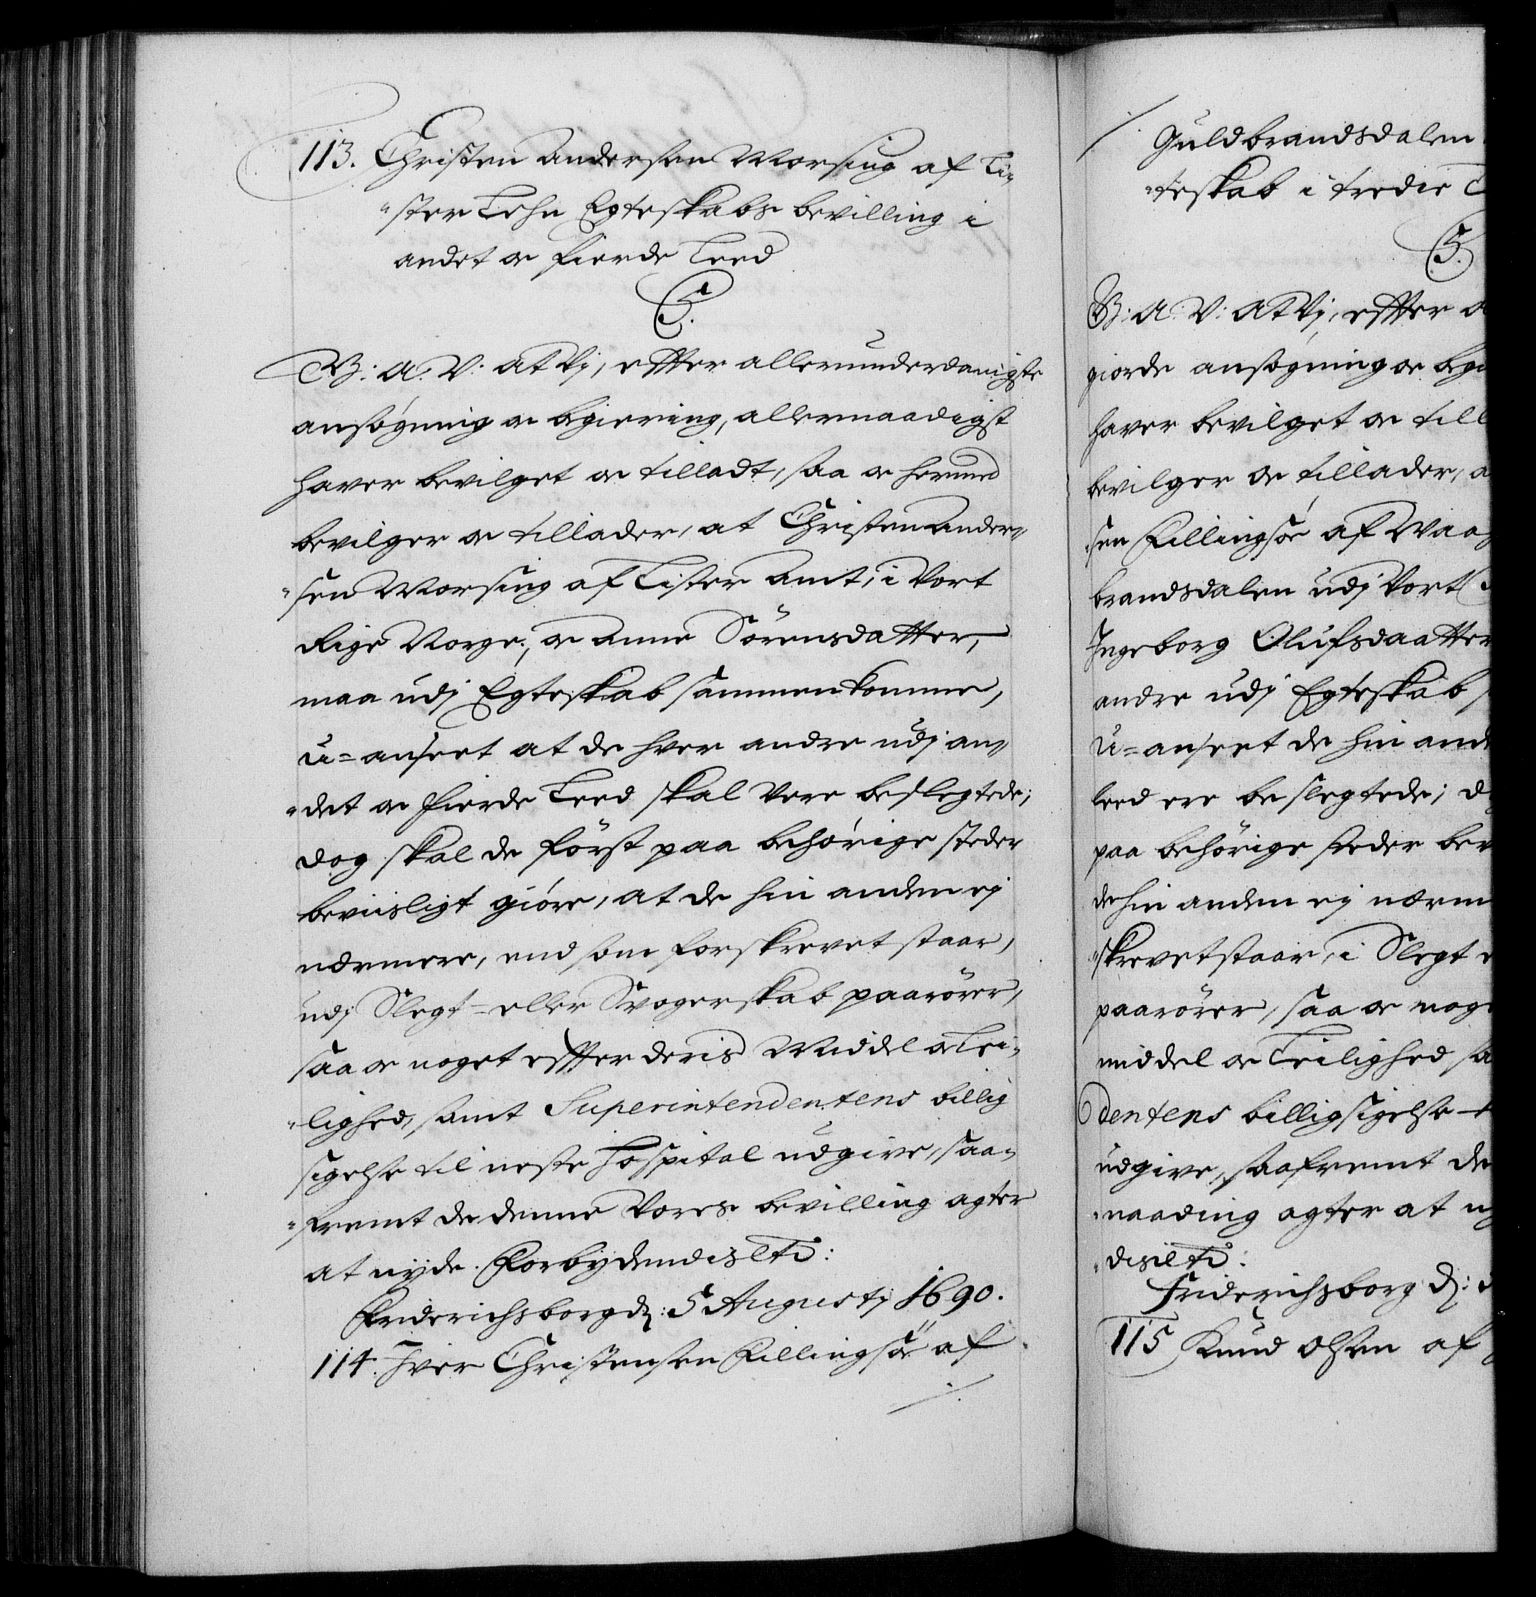 113. Christen Andersen Morsing af Li-
ster Lehn Egteskabs bevilling i
andet oc fierde Leed
C5.
G: A: V: at Vj, effter allerunderdanigste
ansögning oc begiering, allernaadigst
haver bevilget oc tilladt, saa oc hermed
bevilger oc tillader, at Christen Ander-
sen Morsing af Lister Amt, i Vort
Rige Norge, oc Anne Sörensdatter,
maa udj Egteskab sammenkomme,
u=anseet at de hver andre udj an-
det oc fierde Leed skal vere beslegtede;
dog skal de först paa behörige steder
beviisligt giöre, at de hin anden ej
nermere, end som forskrevet staar,
udj Slegt- eller Svogerskab paarörer,
saa oc noget effter deris Middel oc Lei-
lighed, samt Superintendentens billig
sigelse til neste Hospital udgive, saa-
fremt de denne Vores bevilling agter
at nyde. Forbydendis etc:
Friderichsborg d: 5 Augustj 1690.
114. Iver Christensen Fillingsöe af
Guldbrandsdalen
teskab i tredie
C5.
G: A: V: at Vj, effter
giorde ansögning oc
haver bevilget oc
bevilger oc tillader,
sen Fillingsöe af
brandsdalen udj Vort
Ingeborg Olufsdaatter
andre udj Egteskab
u=anseet de hin
leed ere beslegtede;
paa behörige steder
de hin anden ej
skrevet staar, i Slegt
paarörer, saa oc
middel oc Leilighed
dentens billigsigelse
udgive, saafremt
naading agter at
dis etc:
Friderichsborg d:
115 Knud Olsen af